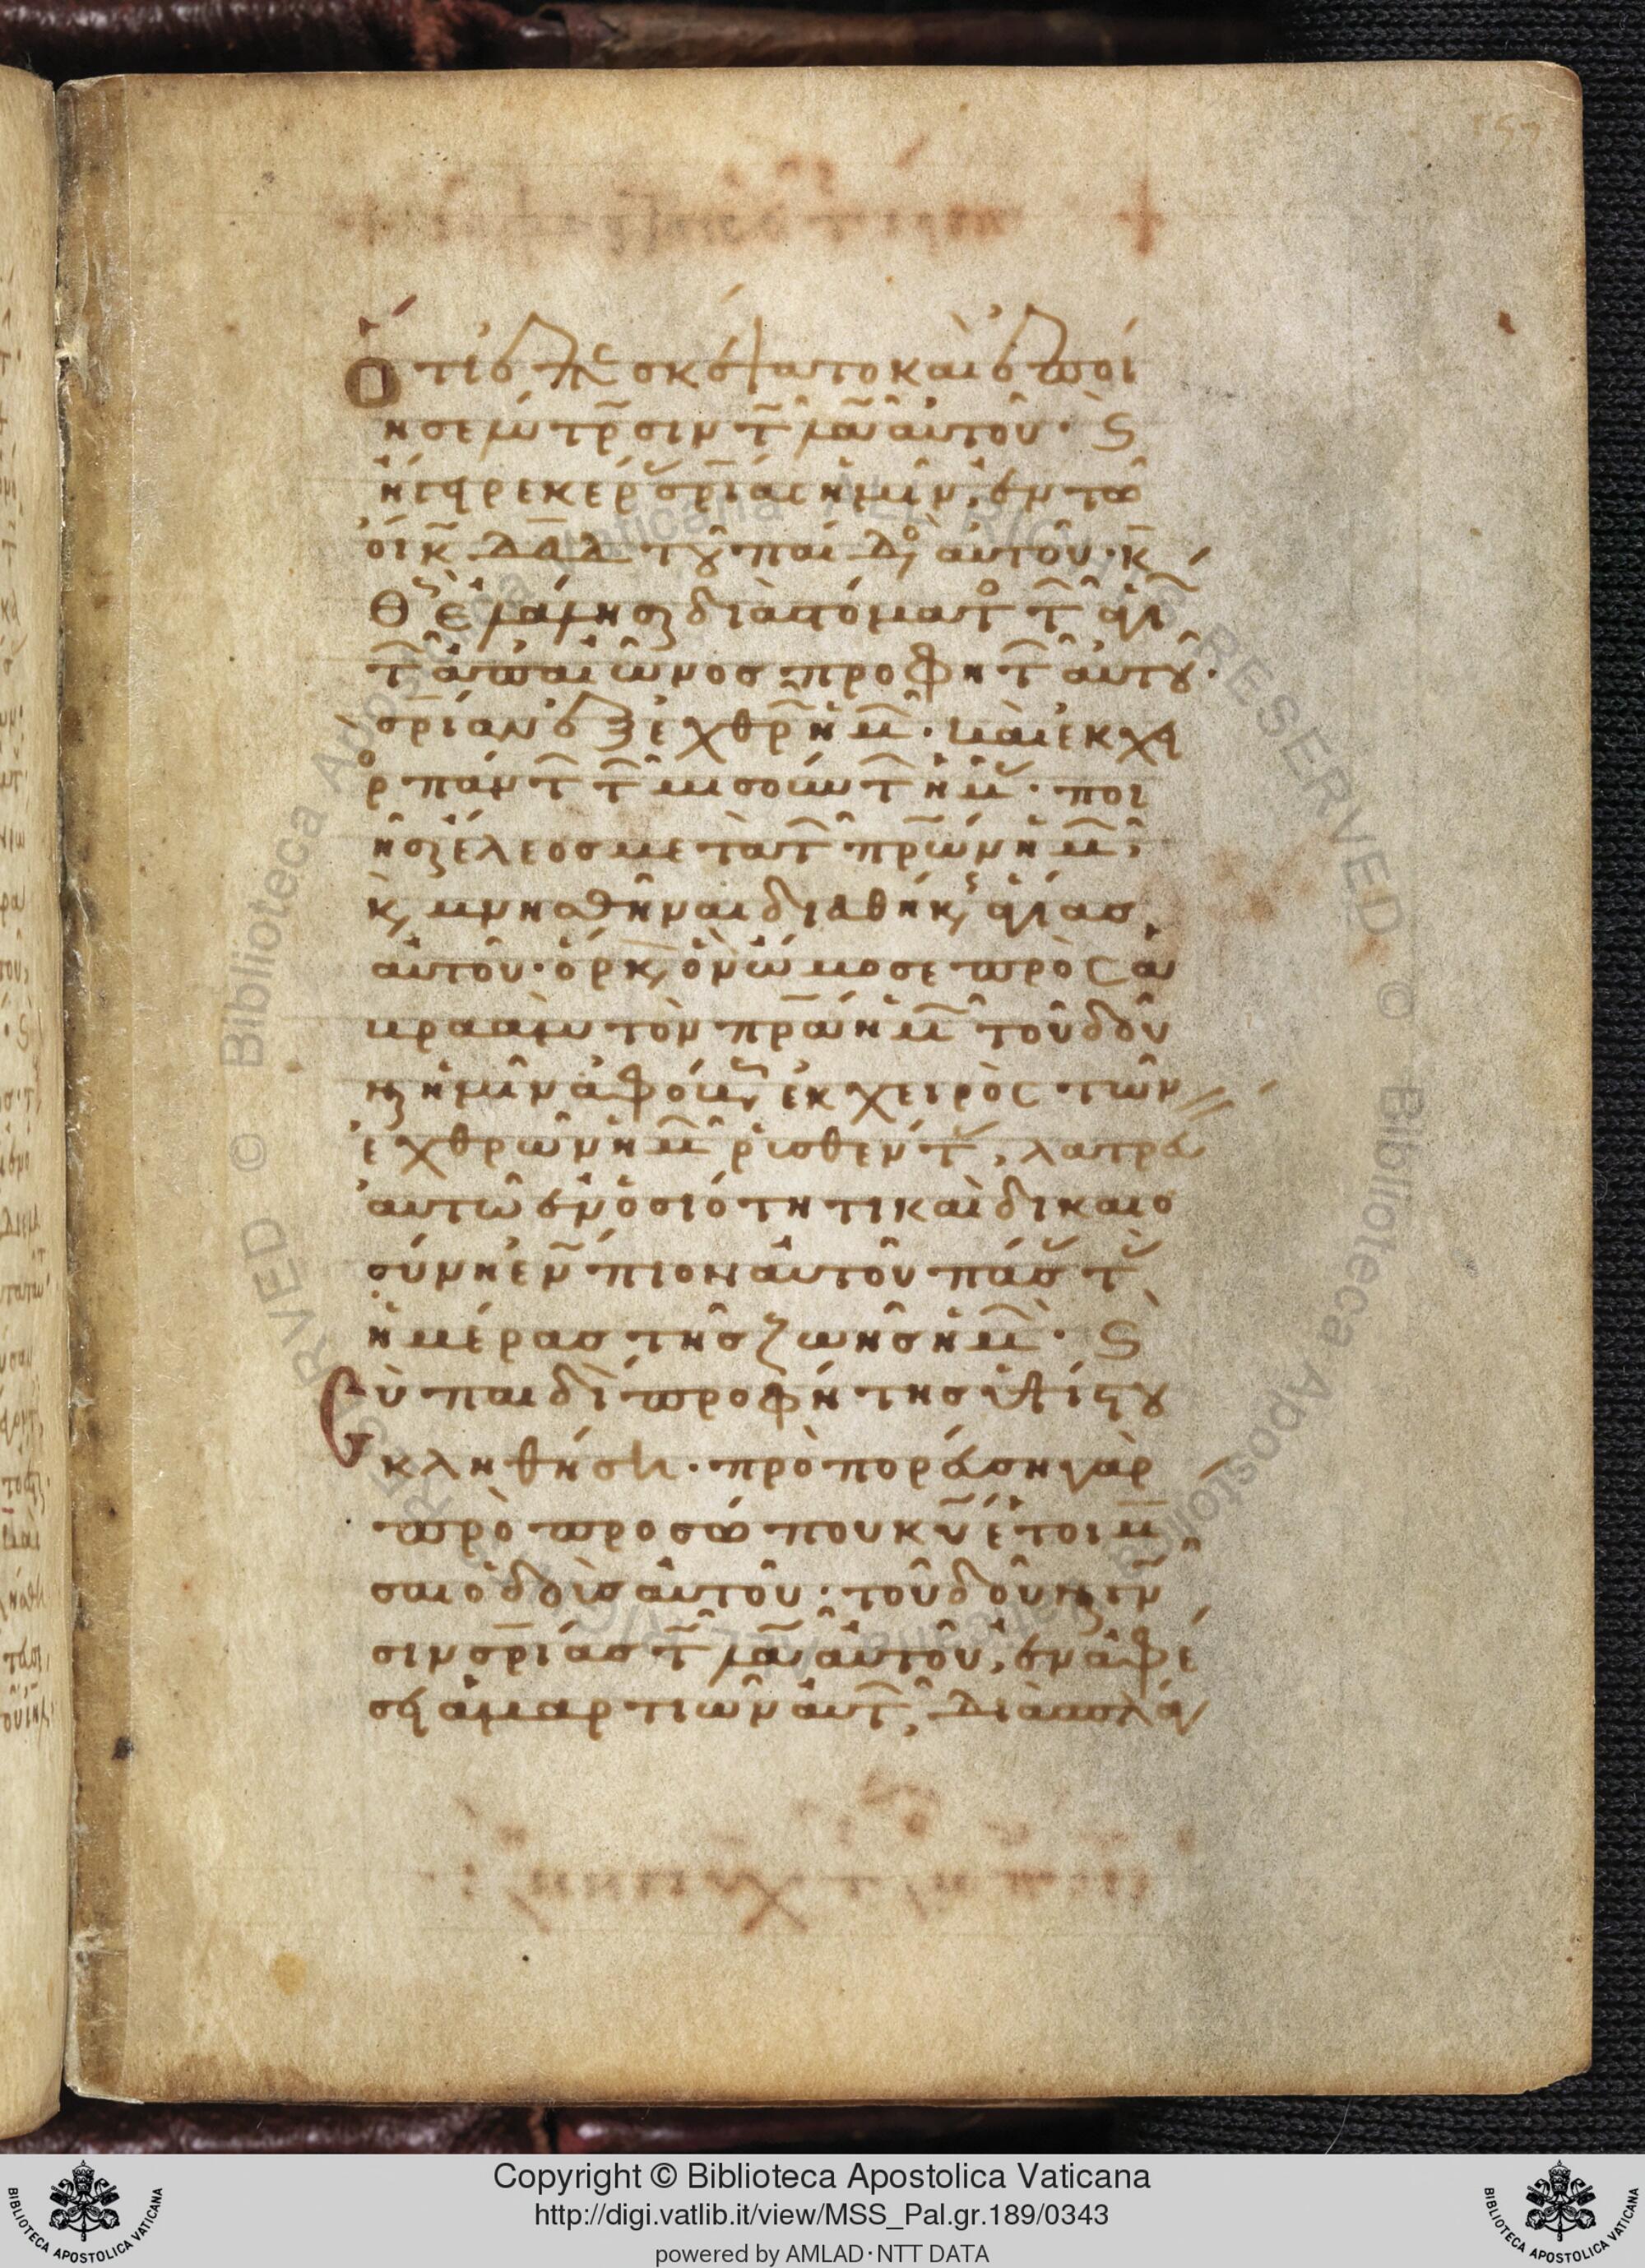 Ὅτι ἐπεσκέψατο καὶ ἐποί
ησε λύτρωσιν τῷ λαῷ αὐτοῦ· Ϛ
ἤγειρε κέρας σρίας ἡμῖν, ἐν τῷ
οἴκῳ δαδ τοῦ παιδὸς αὐτοῦ· κ
θὼς ἐλάλησε διὰ στόματος τῶν ἁγίων
τῶν ἀπ' αἰῶνος προφητῶν αὐτοῦ·
σρίαν ἐξ ἐχθρῶν ἡμῶν· καὶ ἐκ χει
ρὸς πάντων τῶν μισούντων ἡμᾶς· ποι
ῆσαι ἔλεος μετὰ τῶν πρων ἡμῶν·
κ μνησθῆναι διαθήκης ἁγίας
αὐτοῦ· ὅρκον ὃν ὤμοσε πρὸς ἀ
βραὰμ τὸν πρα ἡμῶν τοῦ δοῦ
ναι ἡμῖν ἀφόβως ἐκ χειρὸς τῶν
ἐχθρῶν ἡμῶν ῥυσθέντας, λατρεύειν
αὐτῷ ἐν ὁσιότητι καὶ δικαιο
σύνη ἐνώπιον αὐτοῦ πάσας τὰς
ἡμέρας τῆς ζωῆς ἡμῶν· Ϛ
Σὺ παιδίον προφήτης ὑψίστου
κληθήσῃ· προπορεύσῃ γὰρ
πρὸ προσώπου κυ ἑτοιμά
σαι ὁδοὺς αὐτοῦ· τοῦ δοῦναι γνῶ
σιν σρίας τῷ λαῷ αὐτοῦ, ἐν ἀφέ
σει ἁμαρτιῶν αὐτῶν, Διὰ σπλάγ
Copyright © Biblioteca Apostolica Vaticana
http://digi.vatlib.it/view/MSS_Pal.gr.189/0343
powered by AMLAD·NTT DATA